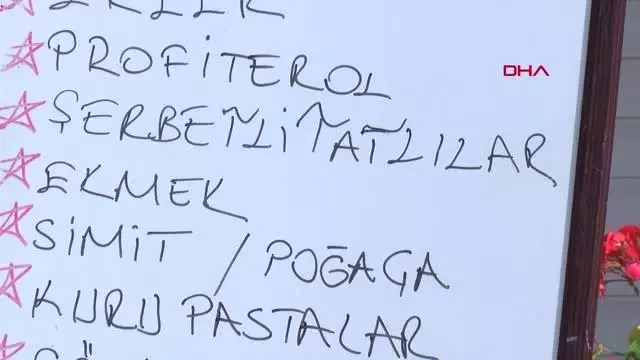 PROFİTEROL
DHA
ŞERBETLİ TATLILAR
EKMEK
SİMİT / POĞAÇA
KURU PASTALAR